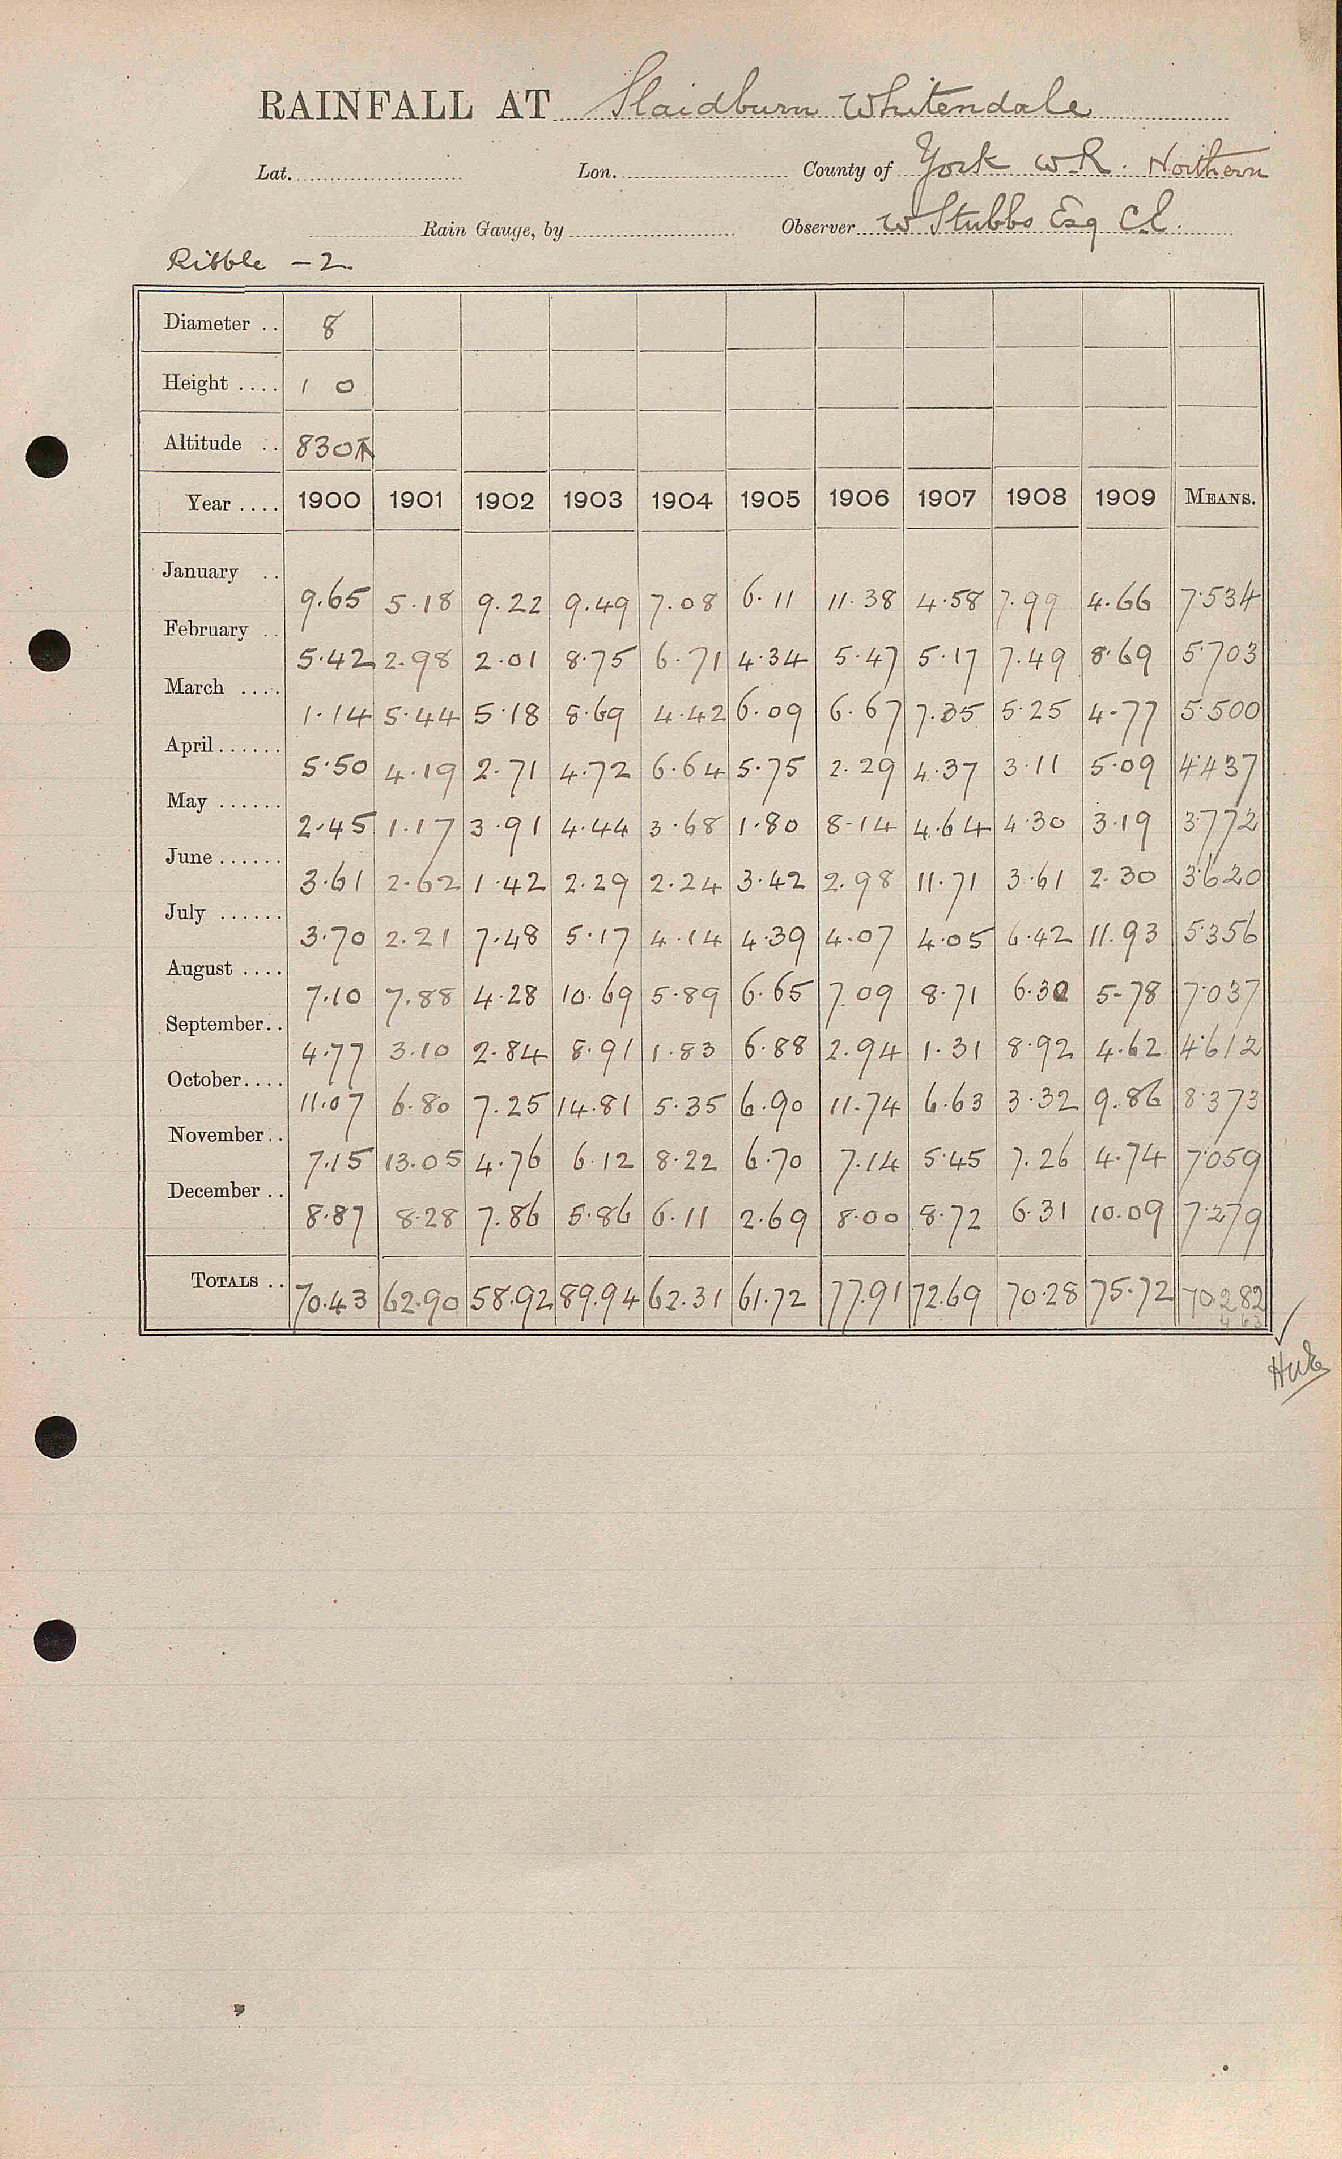 RAINFALL AT Slaidburn Whitendale
Lat. Lon. County of York W.R. Northern
Rain Gauge, by Observer W Stubbs Esq C.E.
Ribble - 2.
Diameter .. 8
Height .... 1 0
Altitude .. 830
Year .... 1900 1901 1902 1903 1904 1905 1906 1907 1908 1909 MEANS.
January .. 9.65 5.18 9.22 9.49 7.08 6.11 11.38 4.58 7.99 4.66 7.534
February .. 5.42 2.98 2.01 8.75 6.71 4.34 5.47 5.17 7.49 8.69 5.703
March .... 1.14 5.44 5.18 8.69 4.42 6.09 6.67 7.35 5.25 4.77 5.500
April...... 5.50 4.19 2.71 4.72 6.64 5.75 2.29 4.37 3.11 5.09 4.437
May ...... 2.45 1.17 3.91 4.44 3.68 1.80 8.14 4.64 4.30 3.19 3.772
June ...... 3.61 2.62 1.42 2.29 2.24 3.42 2.98 11.71 3.61 2.30 3.620
July ...... 3.70 2.21 7.48 5.17 4.14 4.39 4.07 4.05 6.42 11.93 5.356
August .... 7.10 7.88 4.28 10.69 5.89 6.65 7.09 8.71 6.30 5.78 7.037
September.. 4.77 3.10 2.84 8.91 1.83 6.88 2.94 1.31 8.92 4.62 4.612
October.... 11.07 6.80 7.25 14.81 5.35 6.90 11.74 6.63 3.32 9.86 8.373
November.. 7.15 13.05 4.76 6.12 8.22 6.70 7.14 5.45 7.26 4.74 7.059
December .. 8.87 8.28 7.86 5.86 6.11 2.69 8.00 8.72 6.31 10.09 7.279
TOTALS .. 70.43 62.90 58.92 89.94 62.31 61.72 77.91 72.69 70.28 75.72 70.282